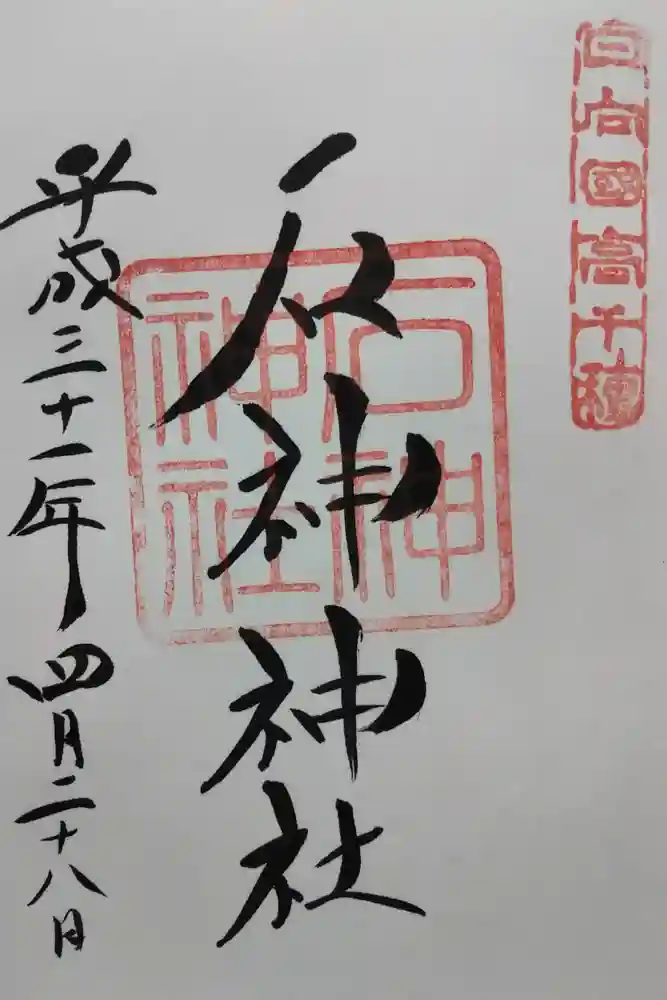 日向國高千穂
石神神社
石神
神社
平成三十一年四月二十八日